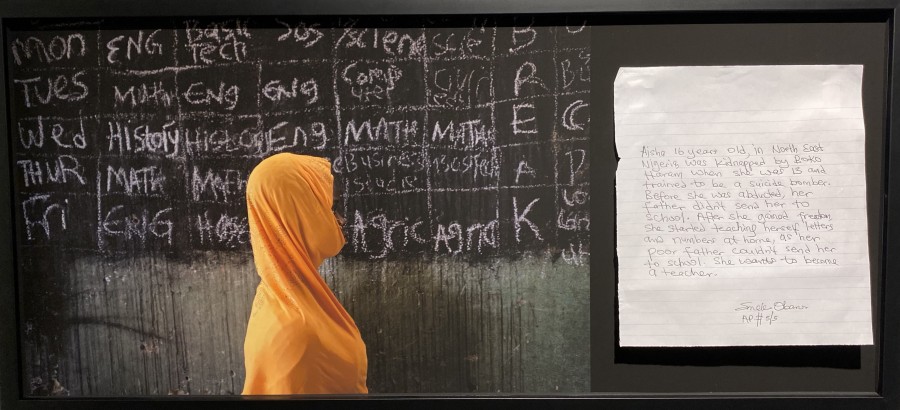 Mon ENG Basic Tech SOS Science B
Tues MATH ENG ENG Computer R
Wed HIStory HIStory Eng MATH MATHS E C
THUR MATH MATH Business A
Fri ENG Agric Agric K
Aisha 16 years old, in North East
Nigeria was kidnapped by Boko
Haram when she was 15 and
trained to be a suicide bomber.
Before she was abducted, her
father didn't send her to
school. After she gained freedom
She started teaching herself letters
and numbers at home, as her
poor father couldn't send her
to school. She wants to become
a teacher.
AP # 5/5